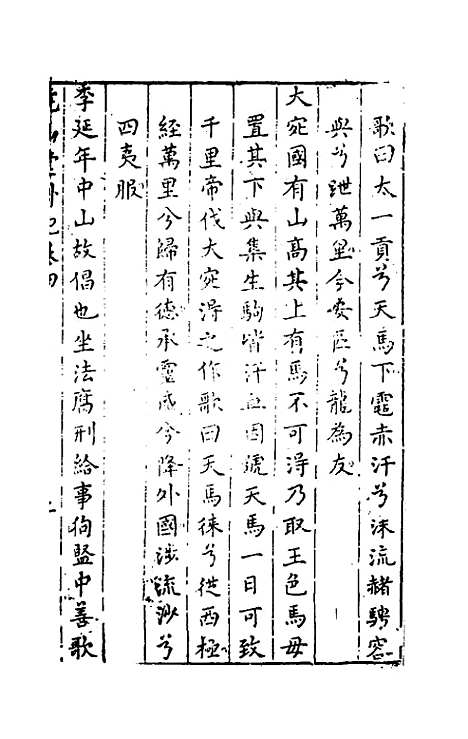 歌曰太一貢兮天馬下霑赤汗兮沫流赭騁容
與兮迣萬里今安匹兮龍為友
大宛國有山高其上有馬不可得乃取五色馬母
置其下與集生駒皆汗血因號天馬一日可致
千里帝伐大宛得之作歌曰天馬徠兮從西極
經萬里兮歸有德承靈威兮降外國涉流沙兮
四夷服
李延年中山故倡也坐法腐刑給事狗監中善歌
堯山堂外紀卷四